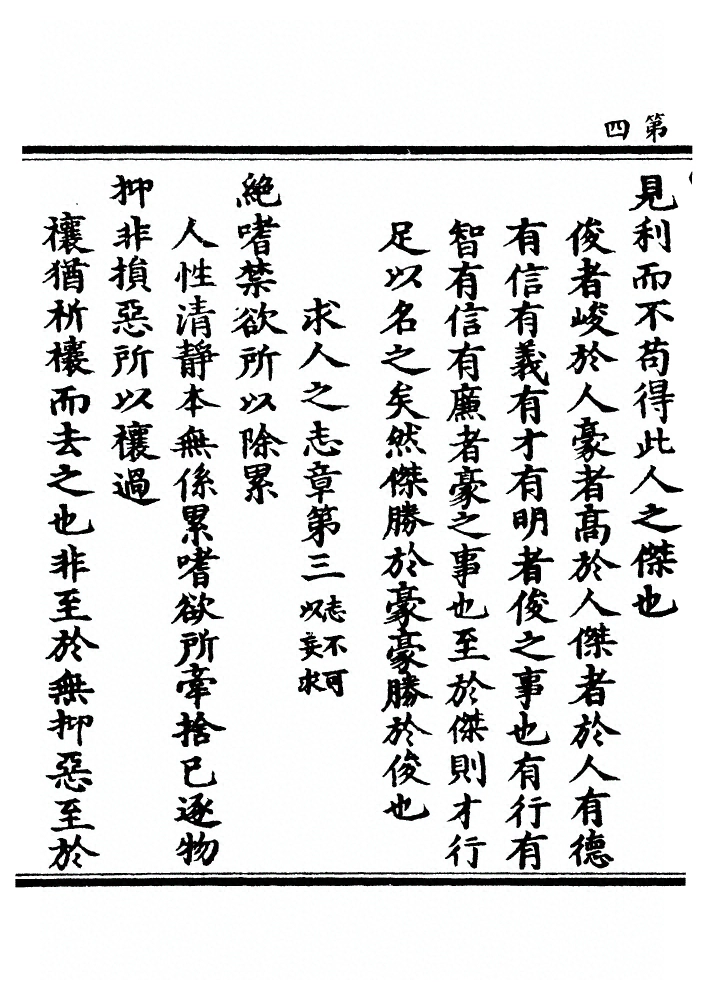 第四
見利而不苟得此人之傑也
俊者峻於人豪者高於人傑者於人有德
有信有義有才有明者俊之事也有行有
智有信有廉者豪之事也至於傑則才行
足以名之矣然傑勝於豪豪勝於俊也
求人之志章第三志不可以妄求
絶嗜禁欲所以除累
人性清靜本無係累嗜欲所牽捨已逐物
抑非損惡所以禳過
禳猶祈禳而去之也非至於無抑惡至於